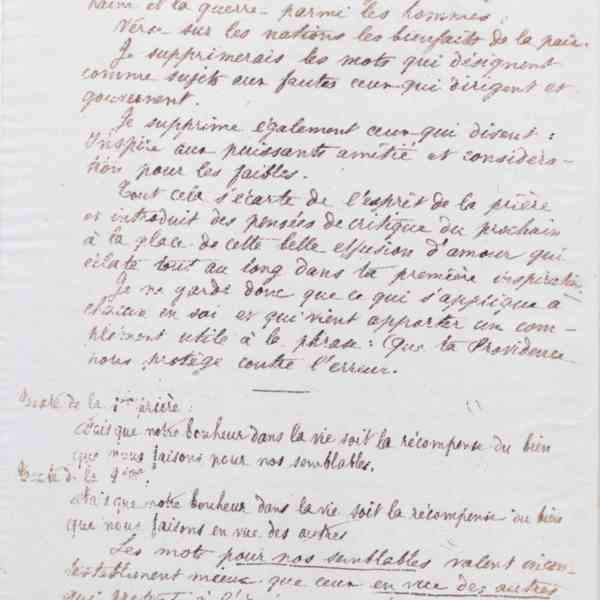 haine et la guerre parmi les hommes ;
Verse sur les nations les bienfaits de la paix.
Je supprimerais les mots qui désignent
comme sujets aux fautes ceux qui dirigent et
gouvernent.
Je supprime également ceux qui disent :
Inspire aux puissants amitié et considéra-
tion pour les faibles.
Tout cela s'écarte de l'esprit de la prière
et introduit des pensées de critique du prochain
à la place de cette belle effusion d'amour qui
éclate tout au long dans la première inspiration.
Je ne garde donc que ce qui s'applique à
chacun en soi et qui vient apporter un com-
plément utile à la phrase : Que ta Providence
nous protège contre l'erreur.
Texte de la 1ère prière :
Fais que notre bonheur dans la vie soit la récompense du bien
que nous faisons pour nos semblables.
Texte de la 2ème
Fais que notre bonheur dans la vie soit la récompense du bien
que nous faisons en vue des autres
Les mots pour nos semblables valent incon-
testablement mieux que ceux en vue des autres
qui